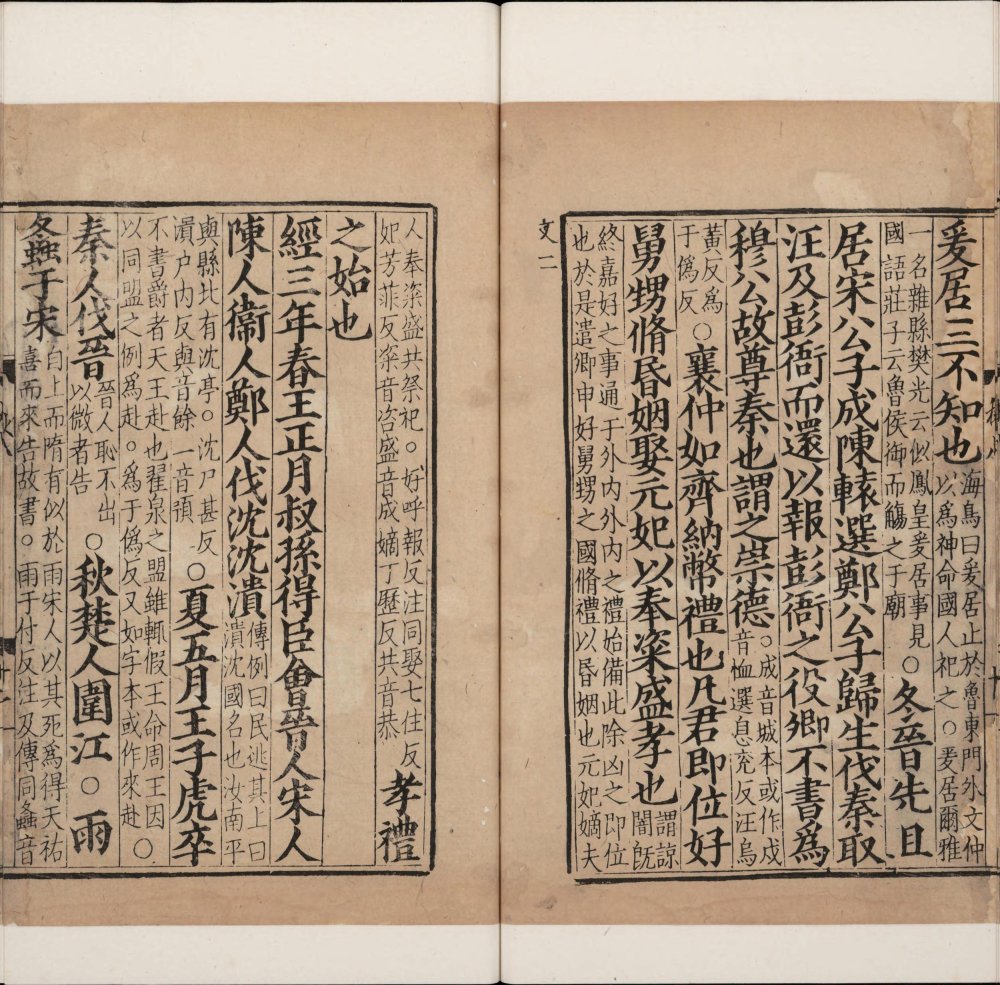 爰居三不知也海鳥曰爰居止於魯東門外文仲以爲神命國人祀之○爰居爾雅
一名雜縣樊光云似鳳皇爰居事見國語莊子云魯侯御而觴之于廟○冬晉先且
居宋公子成陳轅選鄭公子歸生伐秦取
汪及彭衙而還以報彭衙之役卿不書爲
穆公故尊秦也謂之崇德○成音城本或作戍音恤選息充反汪烏
黃反爲于僞反○襄仲如齊納幣禮也凡君即位好
舅甥脩昏姻娶元妃以奉粢盛孝也謂諒闇既
終嘉好之事通于外内外内之禮始備此除凶之即位也於是遣卿申好舅甥之國脩禮以昏姻也元妃嫡夫
文二
人奉粢盛共祭祀○好呼報反注同娶七住反妃芳菲反粢音咨盛音成嫡丁歷反共音恭孝禮
之始也
經三年春王正月叔孫得臣會晉人宋人
陳人衞人鄭人伐沈沈潰傳例曰民逃其上曰潰沈國名也汝南平
輿縣北有沈亭○沈尸甚反潰户内反輿音餘一音預○夏五月王子虎卒
不書爵者天王赴也翟泉之盟雖輒假王命周王因以同盟之例爲赴○爲于僞反又如字本或作來赴○
秦人伐晉晉人恥不出以微者告○秋楚人圍江○雨
螽于宋自上而隋有似於雨宋人以其死爲得天祐喜而來告故書○雨于付反注及傳同螽音